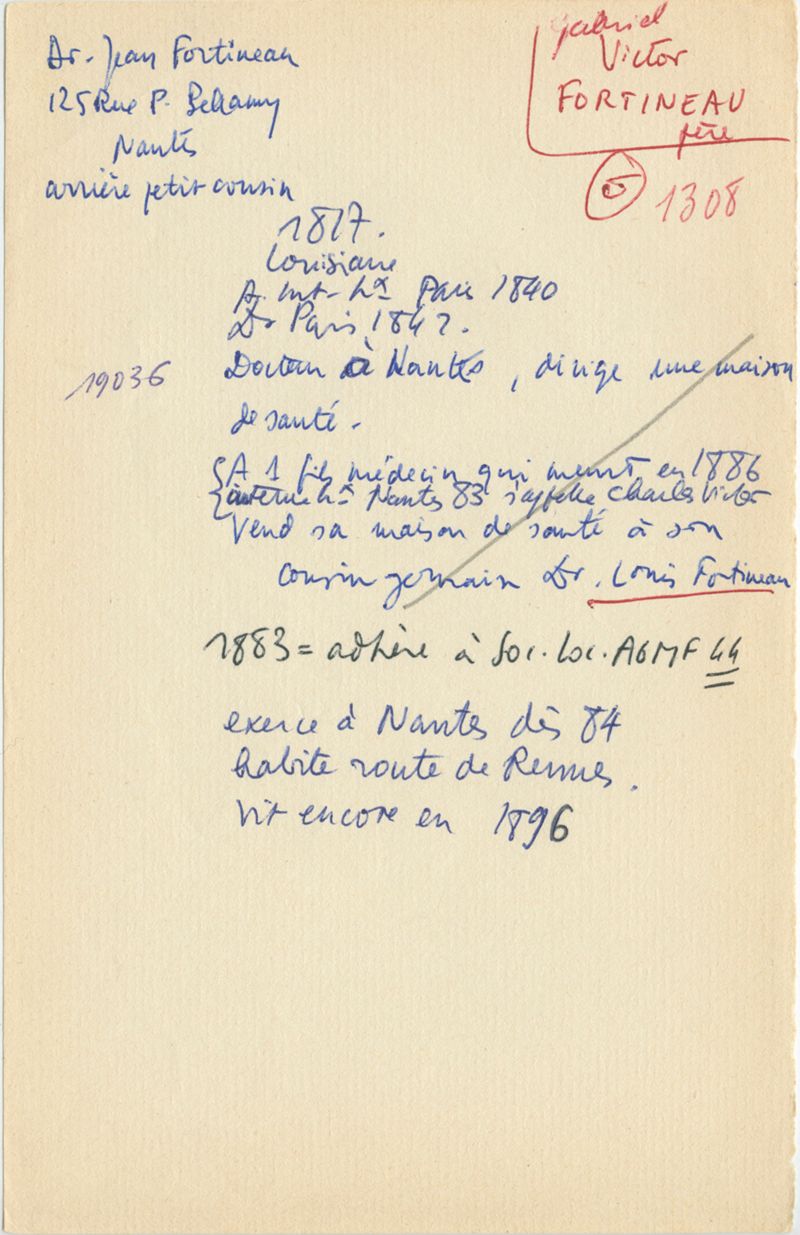 Dr. Jean Fortineau
125 Rue P. Bellamy
Nantes
arrière petit cousin
Gabriel
Victor
FORTINEAU
père
1308
1817.
Louisiane
A. Int. hx Paris 1840
Dr Paris 1842.
19036
Docteur à Nantes, dirige une maison
de santé.
A 1 fils médecin qui meurt en 1886
interne hx Nantes 83 s'appelle Charles Victor
Vend sa maison de santé à son
cousin germain Dr. Louis Fortineau
1883 = adhère à Soc. Loc. AGMF 44
exerce à Nantes dès 84
habite route de Rennes.
Vit encore en 1896